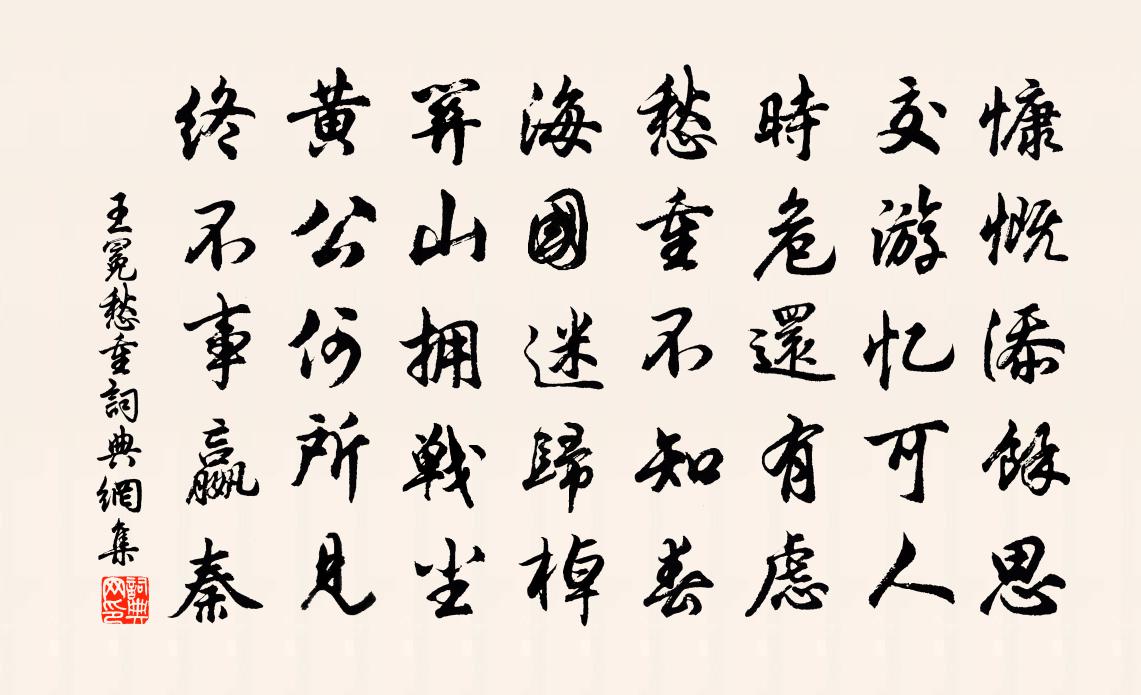 慷慨添餘思
交游忆可人
時危還有慮
愁重不知春
海國迷歸棹
關山拥戰尘
黄公何所見
终不事嬴秦
王冕愁重詞典網集
詞典網印